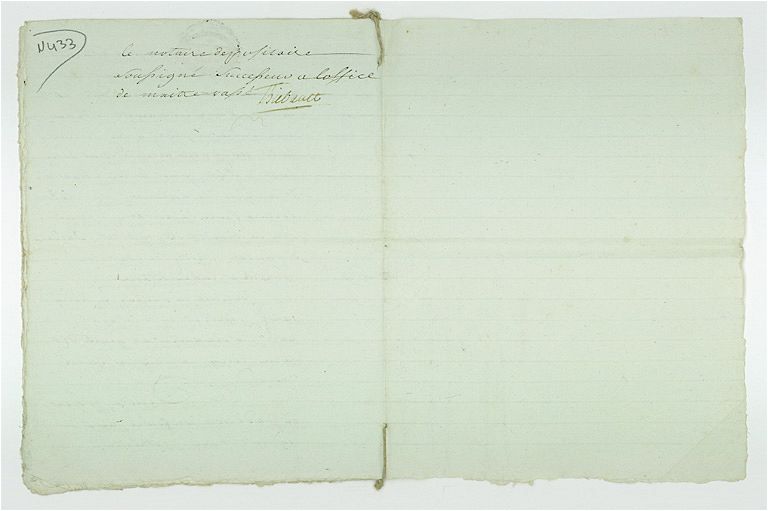 N433
le notaire depositaire
soussigné successeur a l'office
de maitre vassé Thibault